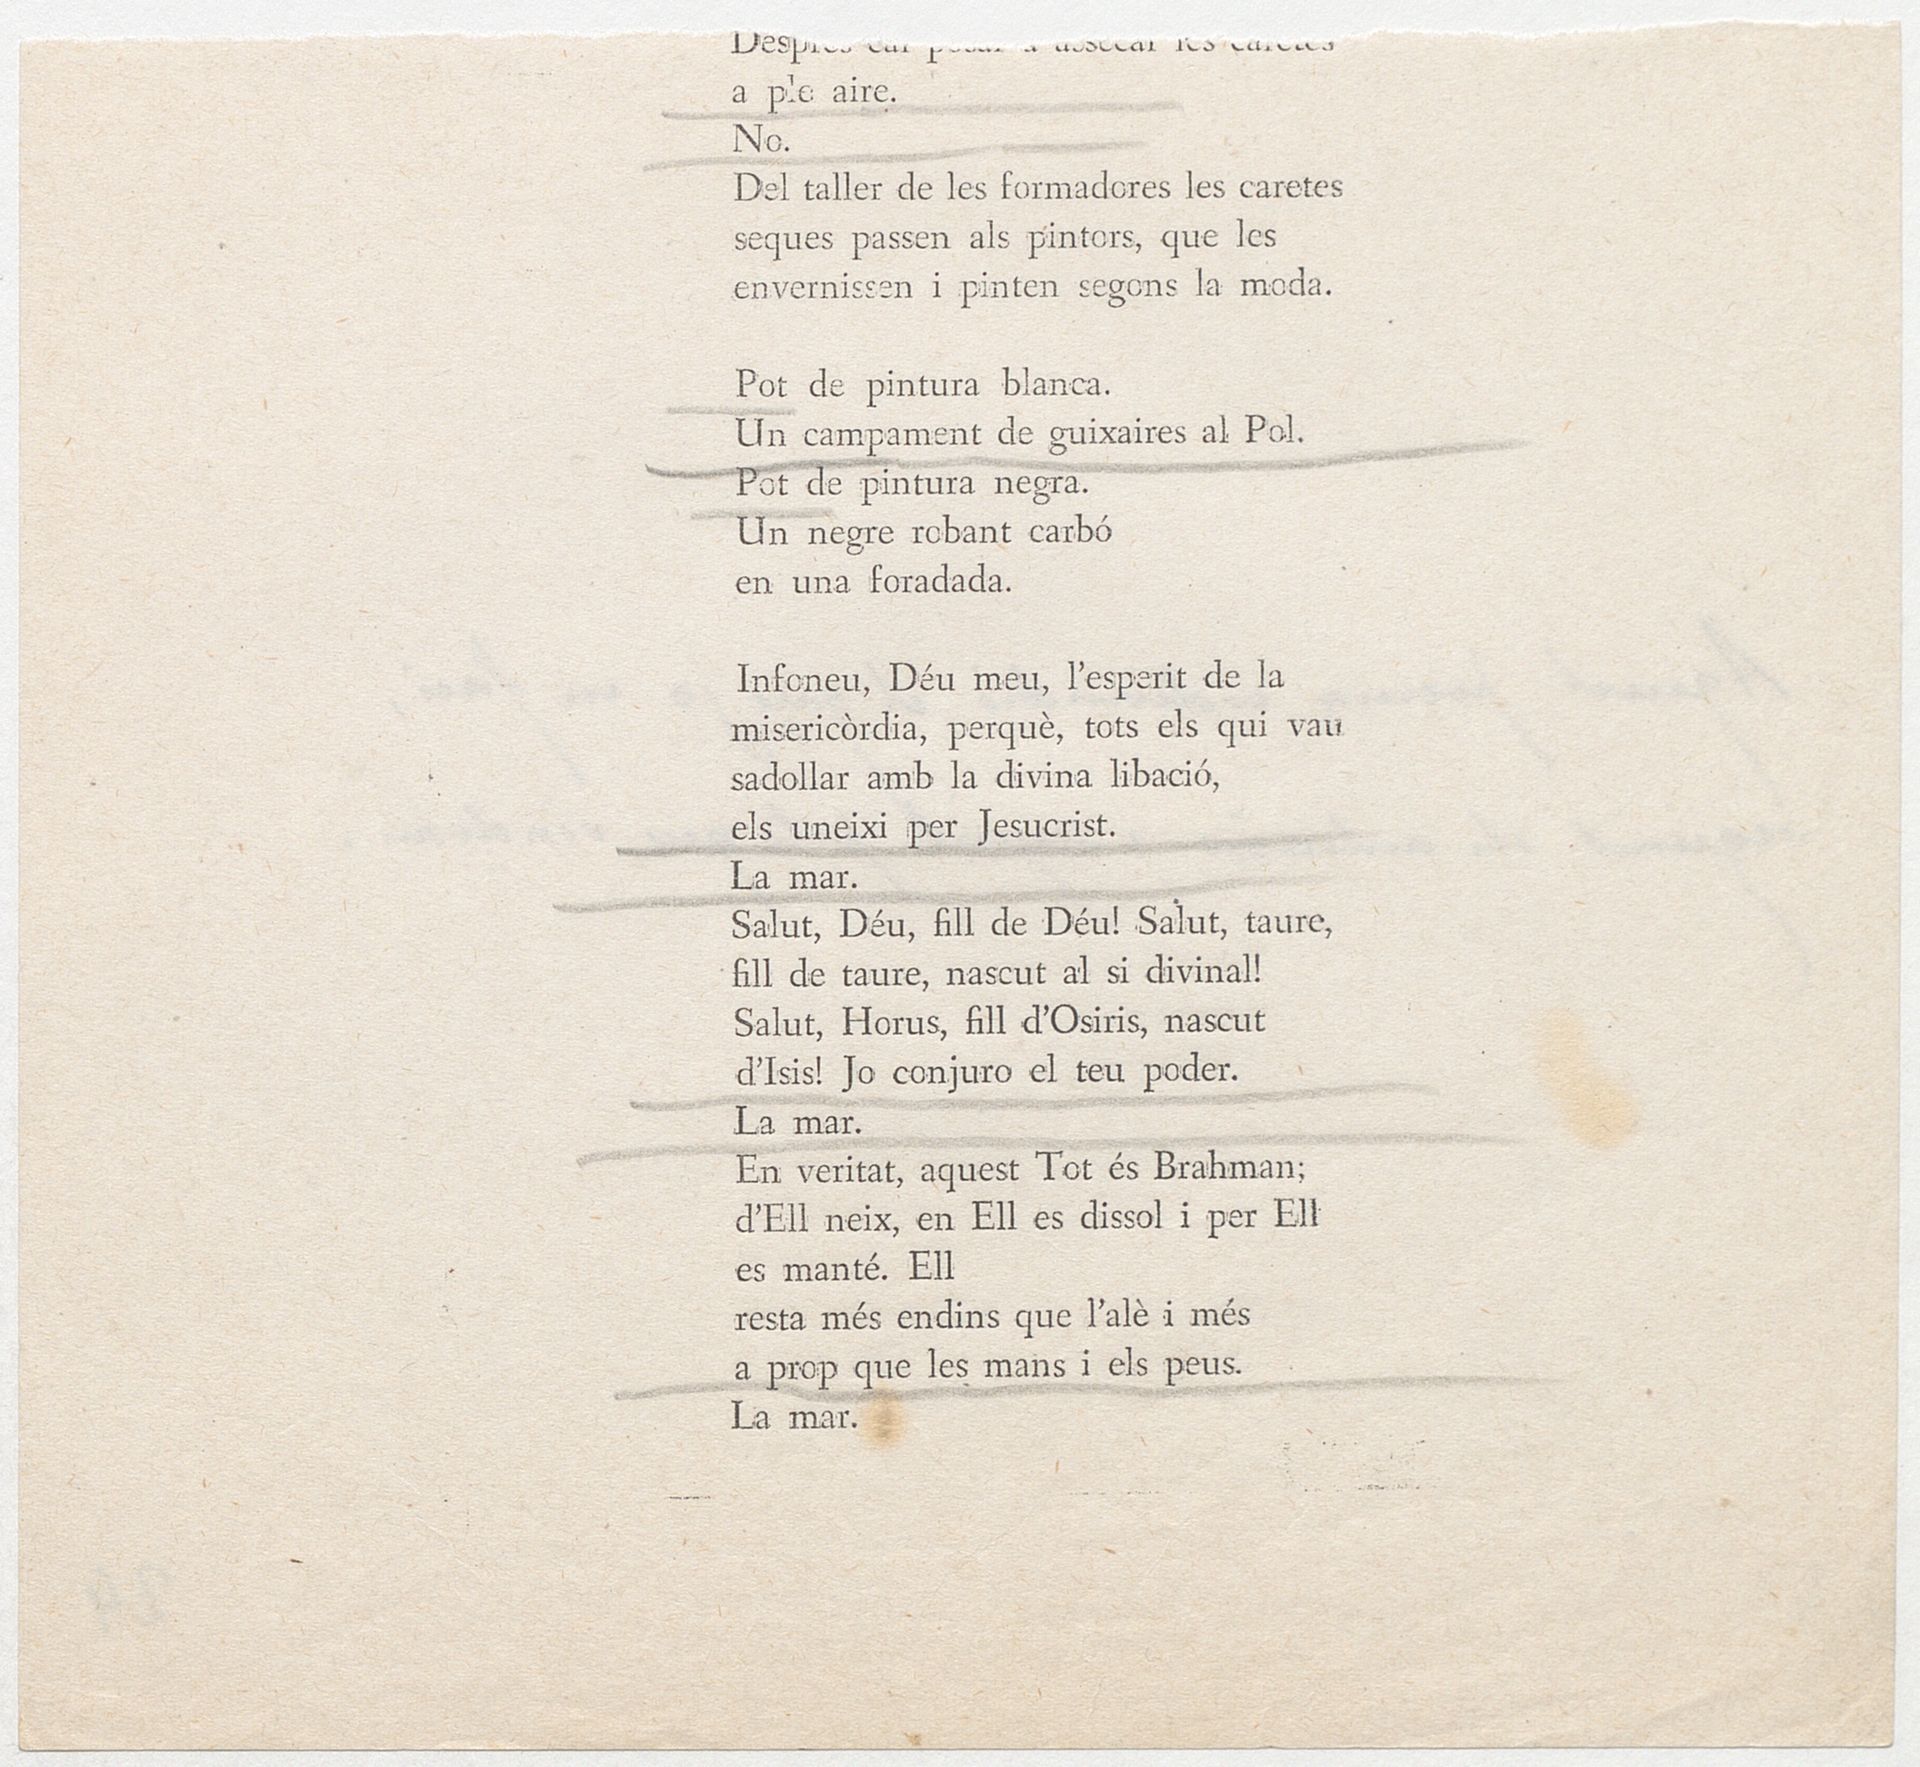 Després cal posar a assecar les caretes
a ple aire.
No.
Del taller de les formadores les caretes
seques passen als pintors, que les
envernissen i pinten segons la moda.
Pot de pintura blanca.
Un campament de guixaires al Pol.
Pot de pintura negra.
Un negre robant carbó
en una foradada.
Infoneu, Déu meu, l'esperit de la
misericòrdia, perquè, tots els qui vau
sadollar amb la divina libació,
els uneixi per Jesucrist.
La mar.
Salut, Déu, fill de Déu! Salut, taure,
fill de taure, nascut al si divinal!
Salut, Horus, fill d'Osiris, nascut
d'Isis! Jo conjuro el teu poder.
La mar.
En veritat, aquest Tot és Brahman;
d'Ell neix, en Ell es dissol i per Ell
es manté. Ell
resta més endins que l'alè i més
a prop que les mans i els peus.
La mar.